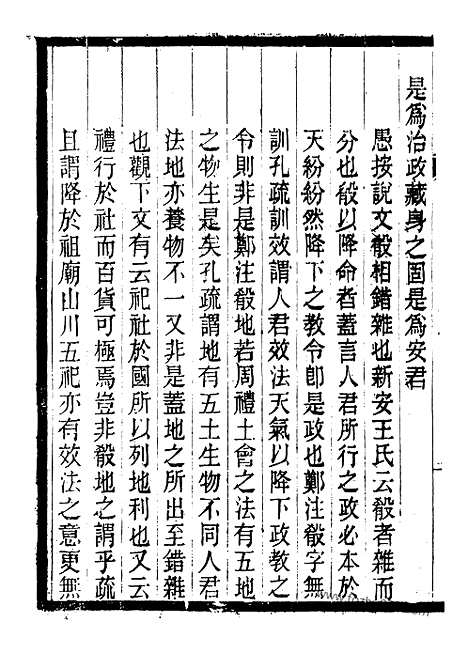 是爲治政藏身之固是爲安君
愚按說文殽相錯雜也新安王氏云殽者雜而
分也殽以降命者蓋言人君所行之政必本於
天紛紛然降下之教令卽是政也鄭注殽字無
訓孔疏訓效謂人君效法天氣以降下政教之
令則非是鄭注殽地若周禮土會之法有五地
之物生是矣孔疏謂地有五土生物不同人君
法地亦養物不一又非是蓋地之所出至錯雜
也觀下文有云祀社於國所以列地利也又云
禮行於社而百貨可極焉豈非殽地之謂乎疏
且謂降於祖廟山川五祀亦有效法之意更無